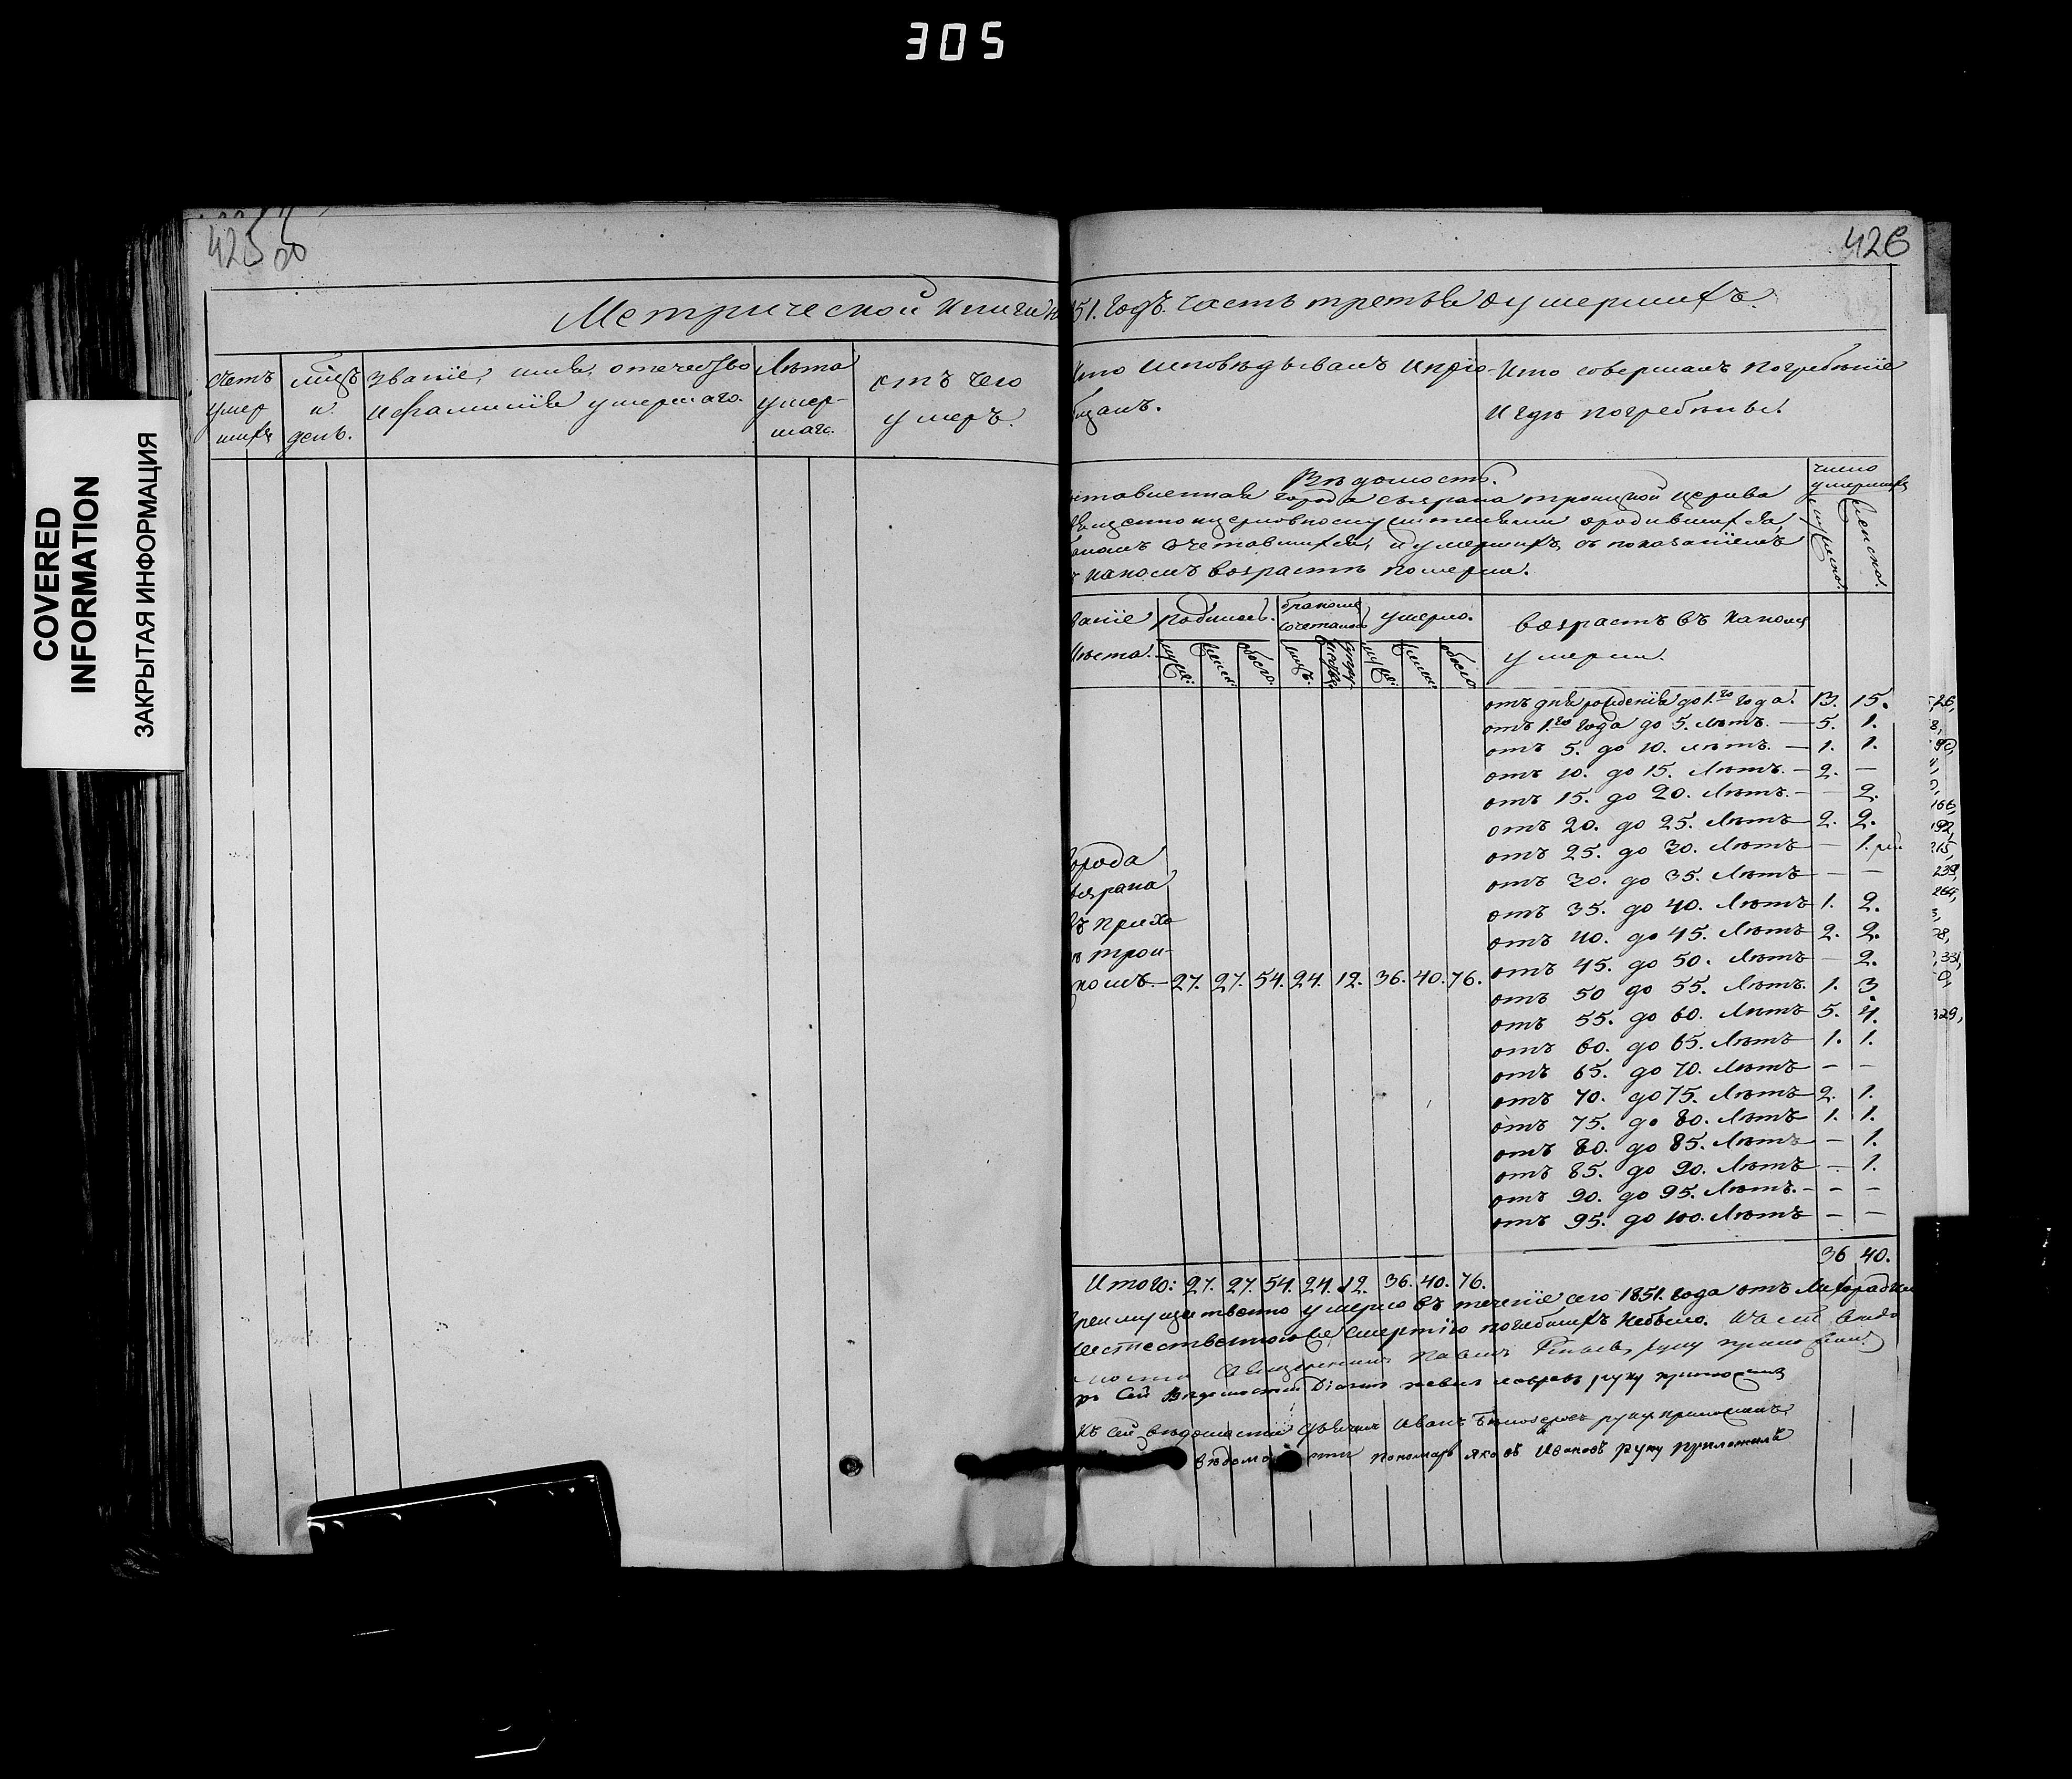 305
425 об
426
COVERED
INFORMATION
ЗАКРЫТАЯ ИНФОРМАЦИЯ
Метрической книги на
51. годъ. часть третья о умершихъ.
Счетъ
умер
шихъ
мцъ
и
день.
Званіе, имя, отечество
и фамилія умершаго.
Лѣта
умер-
шаго.
отъ чего
умеръ.
Кто исповѣдывалъ и прiо-
Кто совершалъ погребѣніе
и гдѣ погребѣны.
Вѣдомость.
ставленная города Сызрана Троицкой церкви
священноцерковнослужителями о родившихся,
бракомъ сочетавшихся, и умершихъ съ показаніемъ
въ какомъ возрастѣ померли.
число
умершихъ
мужеска.
женска.
званіе
мѣста.
родилось.
бракомъ
сочеталось
умерло.
муж:
жен:
обоего.
муж:
жен:
обоего
возрастъ въ какомъ
умерли.
отъ дня рожденія до 1.го года. 13. 15.
отъ 1.го года до 5. лѣтъ. — 5. 1.
отъ 5. до 10. лѣтъ. — 1. 1.
отъ 10. до 15. лѣтъ. — 2. —
отъ 15. до 20. лѣтъ. — — 2.
отъ 20. до 25. лѣтъ 2. 2.
отъ 25. до 30. лѣтъ — 1.
отъ 30. до 35. лѣтъ — —
отъ 35. до 40. лѣтъ 1. 2.
отъ 40. до 45. лѣтъ 2. 2.
отъ 45. до 50. лѣтъ — 2.
отъ 50 до 55. лѣтъ. 1. 3.
отъ 55. до 60. лѣтъ 5. 4.
отъ 60. до 65. лѣтъ 1. 1.
отъ 65. до 70. лѣтъ — —
отъ 70. до 75. лѣтъ 2. 1.
отъ 75. до 80. лѣтъ 1. 1.
отъ 80. до 85. лѣтъ — 1.
отъ 85. до 90. лѣтъ — 1.
отъ 90. до 95. лѣтъ. — — —
отъ 95. до 100. лѣтъ — —
36 40.
города
зрана
въ прихо
трои-
комъ. — 27. 27. 54. 24. 12. 36. 40. 76.
Итого: 27. 27. 54. 24. 12. 36. 40. 76.
преимущественно умерло въ теченіе сего 1851. года отъ Лихорадки
естественною смертію погибшихъ небыло. К сей вѣдо
мости Священникъ Павелъ руку приложилъ
къ сей Вѣдомости Діаконъ руку приложилъ
Къ сей вѣдомости Дьячекъ Иванъ Бѣлозеровъ руку приложилъ
вѣдомости пономарь Яковъ Ивановъ руку приложилъ
166,
192,
215,
239,
264,
331,
329,